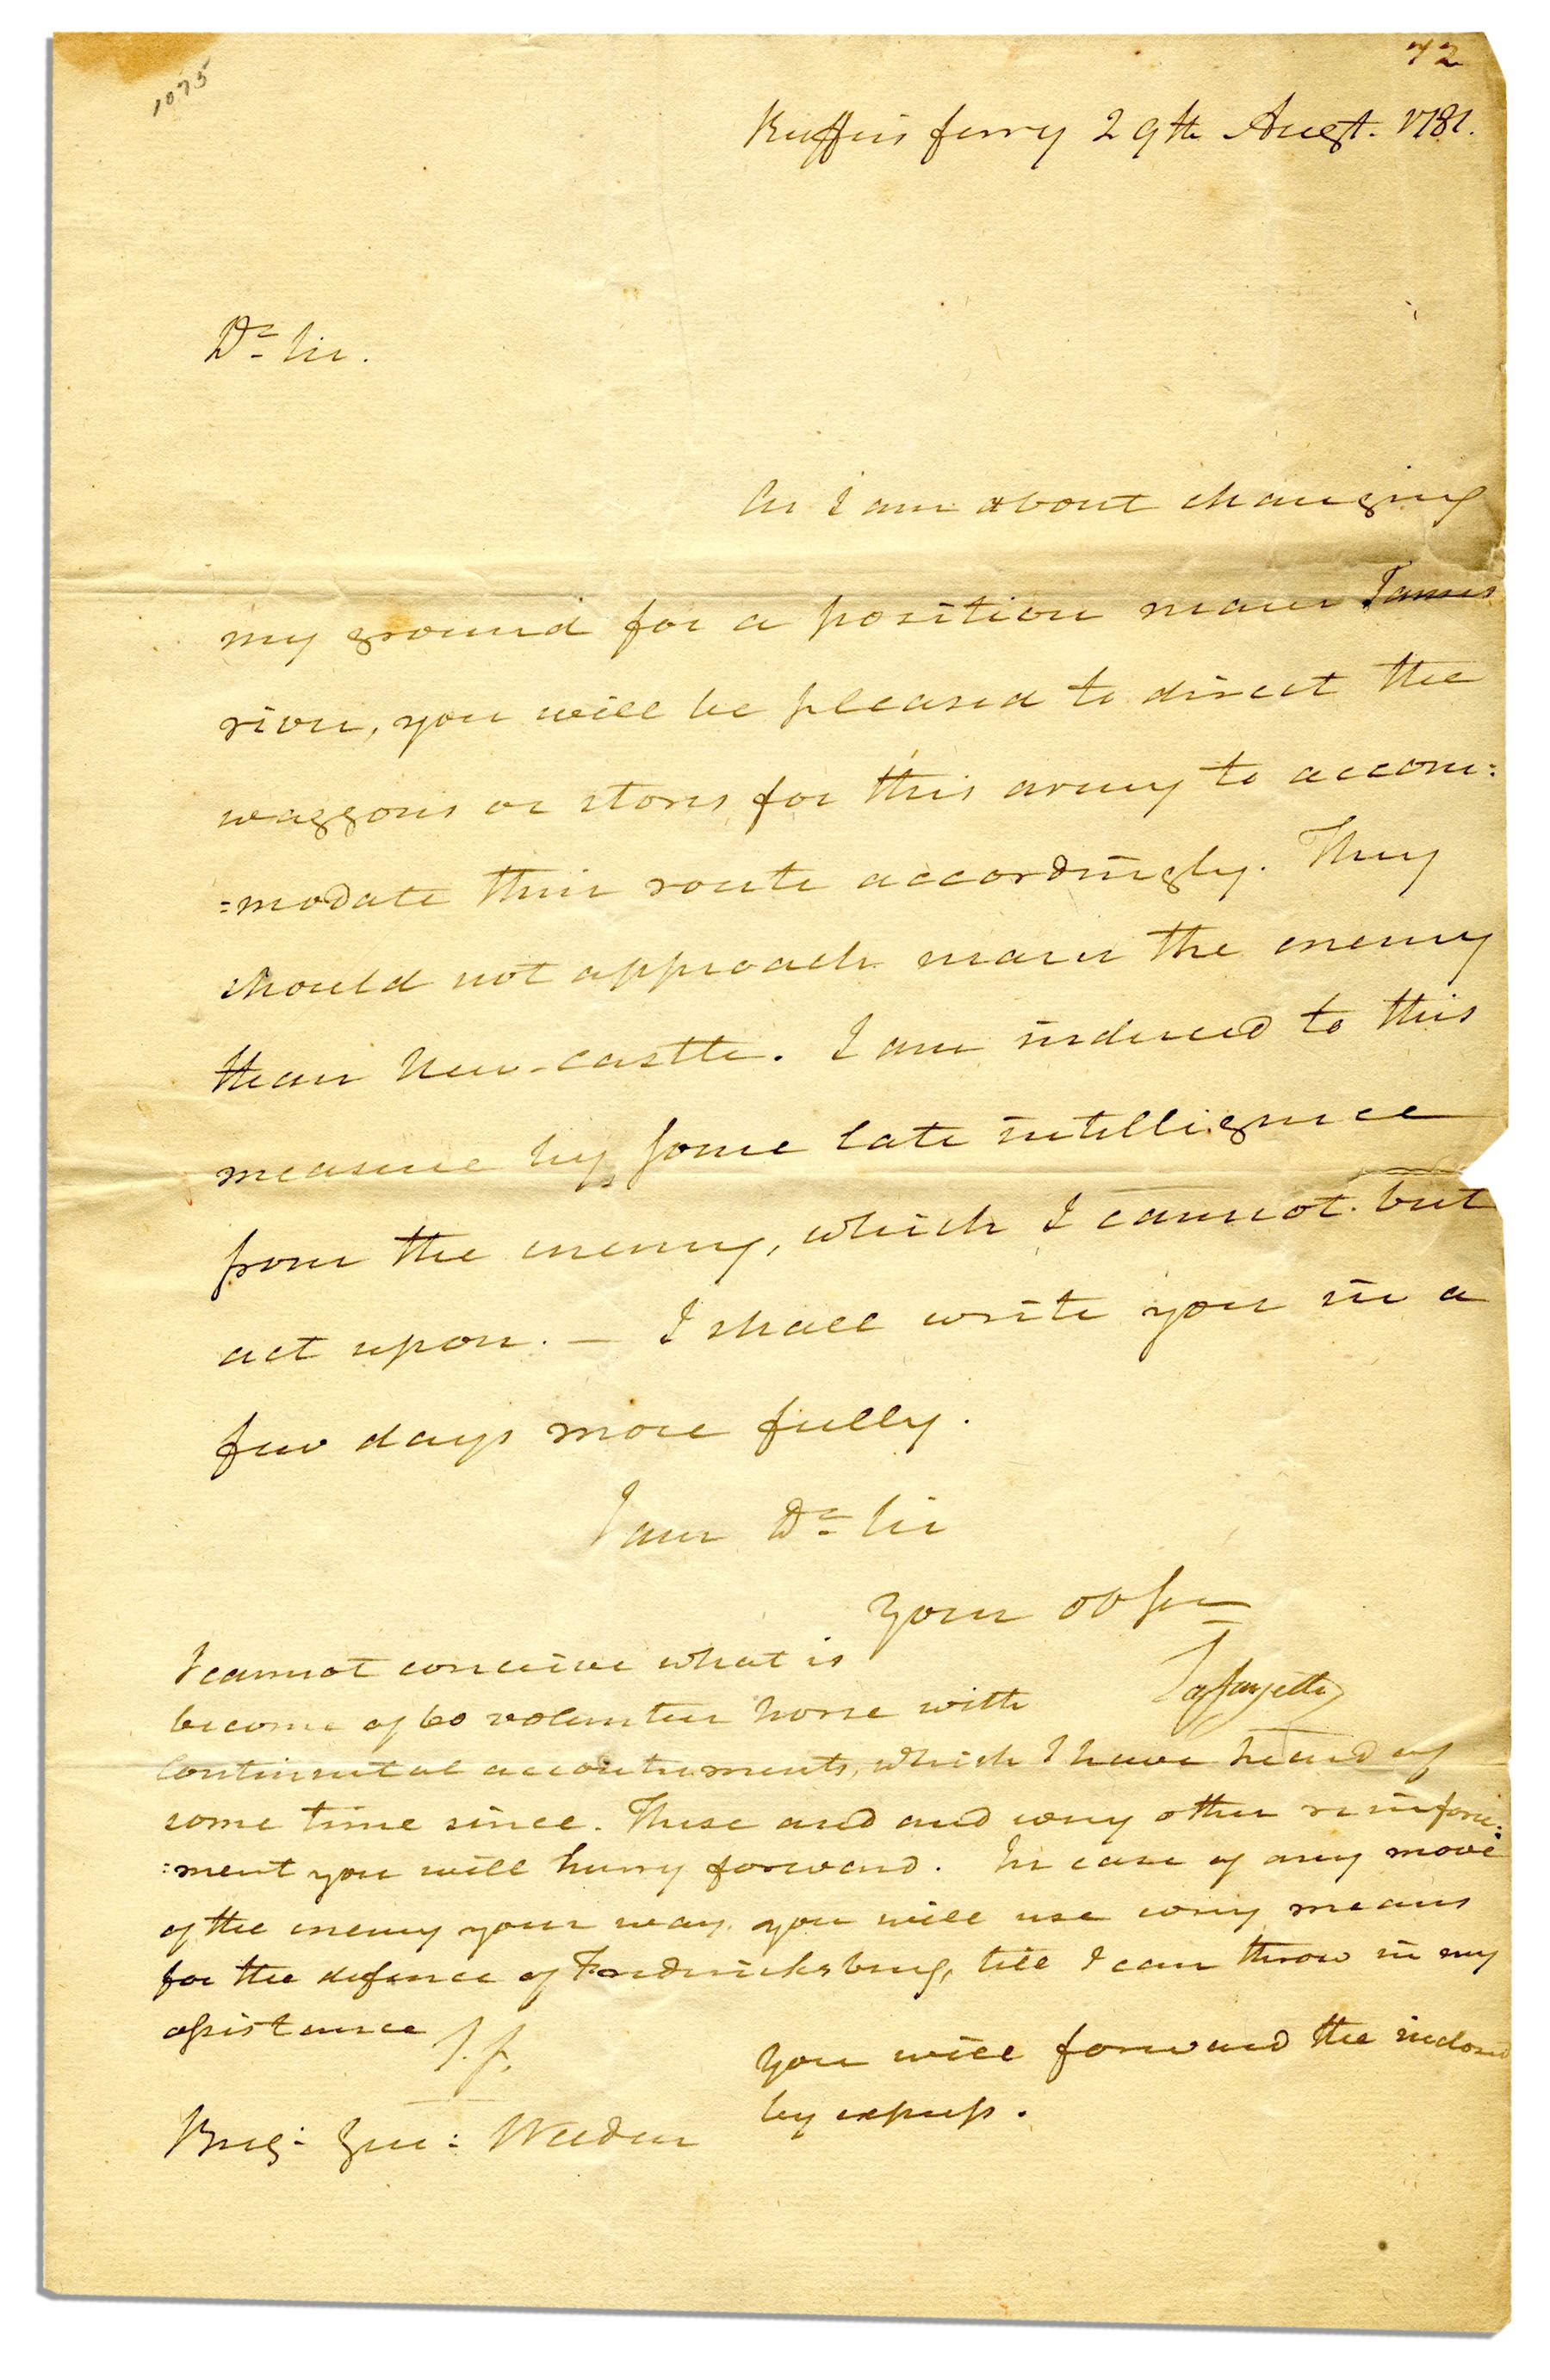 72
1075
Ruffins ferry 29th Augt. 1781.
Dr Sir.
As I am about changing
my ground for a position near James
river, you will be pleased to direct the
waggons or stores for this army to accom:
=modate their route accordingly. They
should not approach nearer the enemy
than New-castle. I am induced to this
measure by some late intelligence
from the enemy, which I cannot but
act upon. — I shall write you in a
few days more fully.
I am Dr Sir
Your ob Ser
Lafayette
I cannot conceive what is
become of 60 volunteer horse with
Continental accoutrements, which I have heard of
some time since. These and and every other reinforce:
:ment you will hurry forward. In case of any move
of the enemy your way, you will use every means
for the defence of Fredericksburg, till I can throw in my
assistance
L.f.
You will forward the inclosed
by express.
Brig: Gen: Weedon